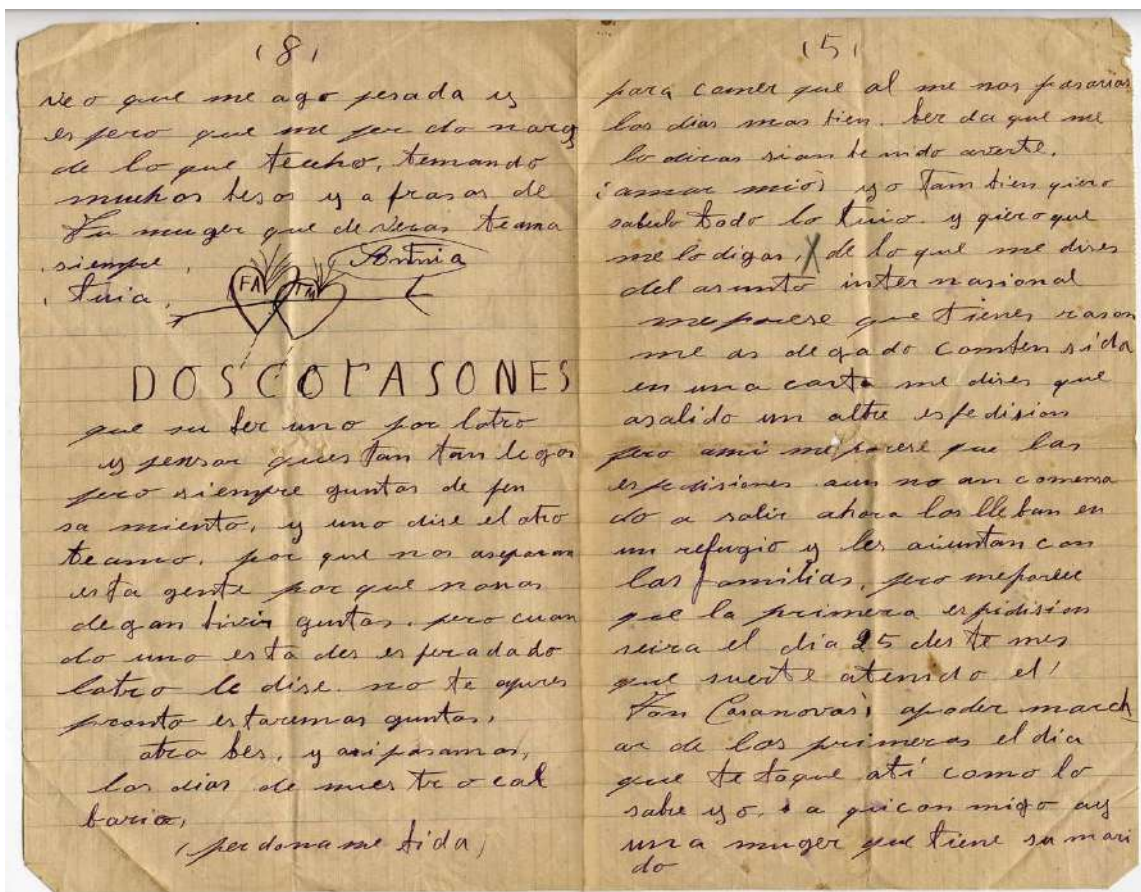 (8)
veo que me ago pesada y
espero que me perdonaras
de lo que techo, temando
muchos besos y afrasos de
Tu muger que de veras teama
siempre, Antnia
tuia,
FA TM
DOSCORASONES
que su ber uno por lotro
y pensar ques tan tan legos
pero siempre guntos de pen
samiento, y uno dise el otro
teamo, por que nos aseparan
esta gente por que nonos
degan bivir guntos, pero cuan
do uno esta des esperadado
lotro le dise no te apures
pronto estaremos guntos,
otra bes, y asi pasamos,
los dias de nuestro cal
bario,
(perdoname bida)
(5)
para comer que al me nos pasarias
los dias mas bien. berda que me
lo diras sian benido averte,
¡amor mio! yo tambien qiero
saberlo todo lo tuio y qiero que
me lo digas, X de lo que me dises
del asunto internasional
meparese que tienes rason
me as degado combensida
en una carta me dises que
asalido un altre espedision
pero ami meparese que las
espedisiones aun no an comensa
do a salir ahora los lleban en
un refugio y les aiuntan con
las familias, pero meparese
que la primera espidision
seira el dia 25 deste mes
que suerte atenido el
Fan Casanovas apoder march
ar de los primeros el dia
que te toque atí como lo
sabre yo. a qui con migo ay
una muger que tiene su mari
do